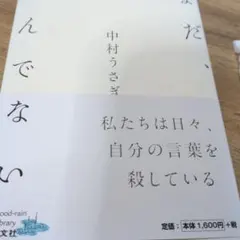 だ、
んでない
中村うさぎ
私たちは日々、
自分の言葉を
殺している
ood-rain
brary
文社
定価：本体1,600円+税